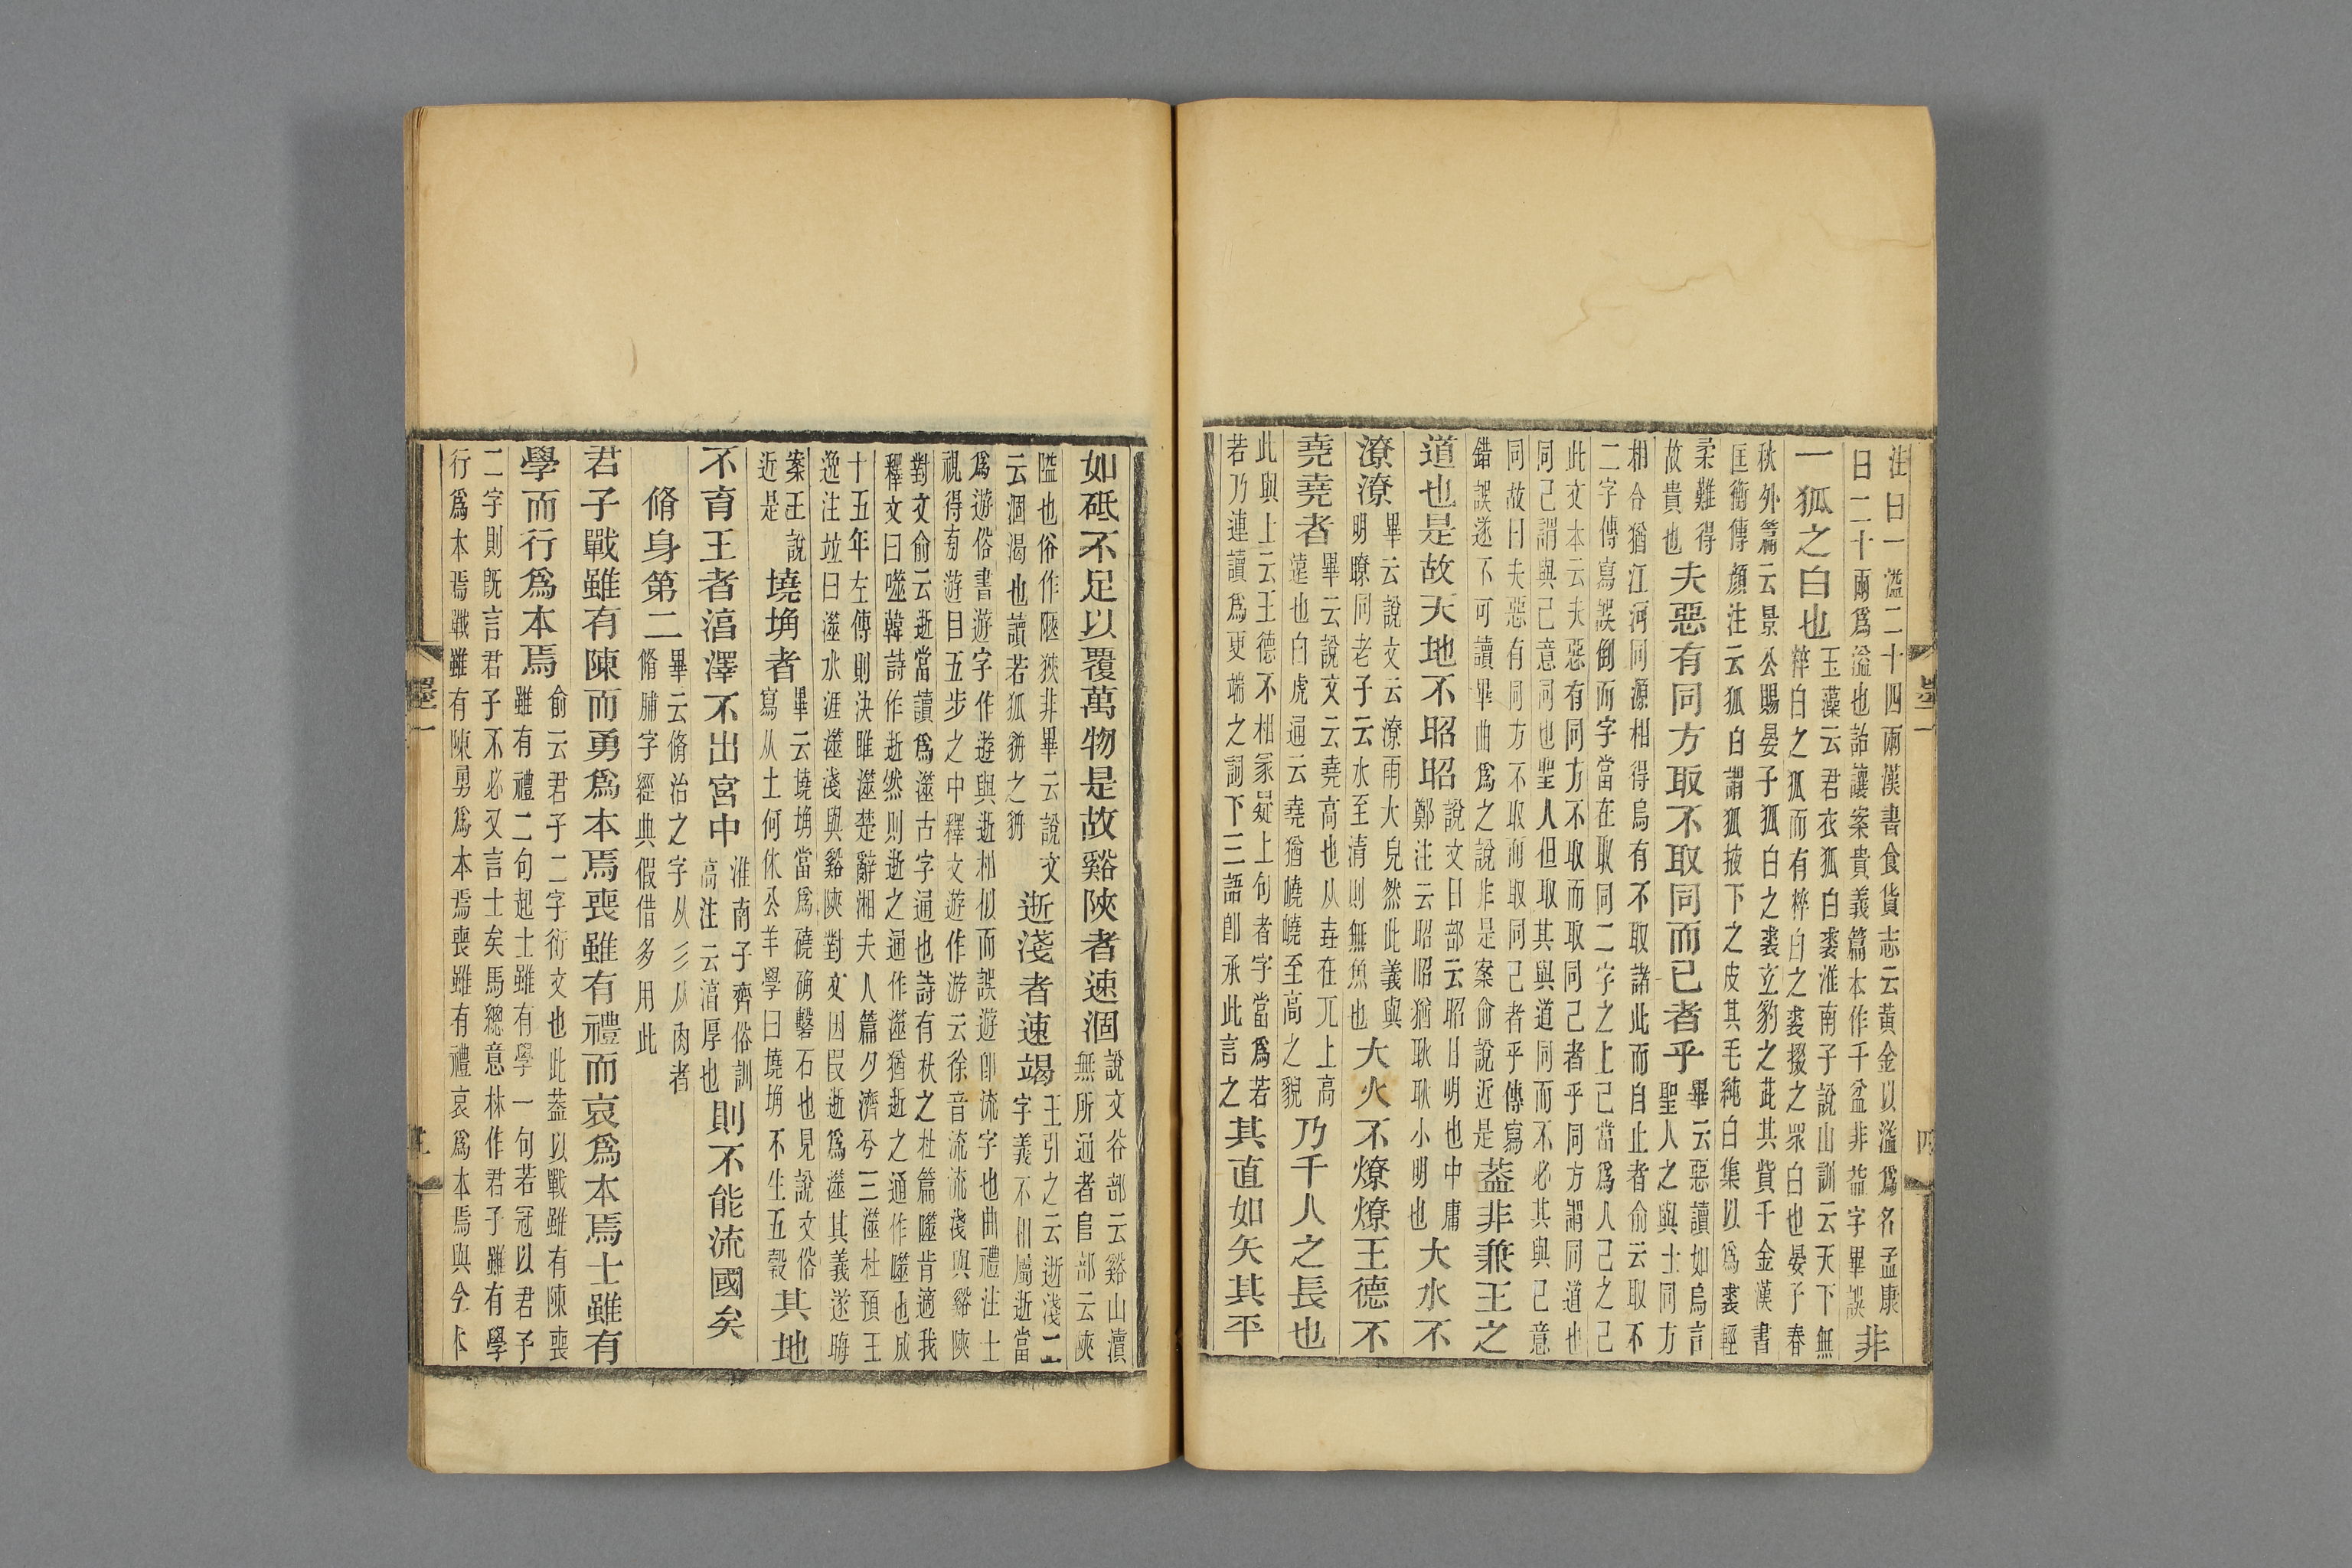 注曰一溢二十四兩漢書食貨志云黃金以溢爲名孟康
曰二十兩爲溢也詒讓案貴義篇本作千盆非益字畢誤非
一狐之白也玉藻云君衣狐白裘淮南子說山訓云天下無
粹白之狐而有粹白之裘掇之眾白也晏子春
秋外篇云景公賜晏子狐白之裘玄豹之茈其貲千金漢書
匡衡傳顏注云狐白謂狐掖下之皮其毛純白集以爲裘輕
柔難得
故貴也夫惡有同方取不取同而已者乎畢云惡讀如烏言
聖人之與士同方
相合猶江河同源相得烏有不取諸此而自止者俞云取不
二字傳寫誤倒而字當在取同二字之上己當爲人己之己
此文本云夫惡有同方不取而取同己者乎同方謂同道也
同己謂與己意同也聖人但取其與道同而不必其與己意
同故曰夫惡有同方不取而取同己者乎傳寫
錯誤遂不可讀畢曲爲之說非是案俞說近是葢非兼王之
道也是故天地不昭昭說文日部云昭日明也中庸
鄭注云昭昭猶耿耿小明也大水不
潦潦畢云說文云潦雨大皃然此義與
明瞭同老子云水至清則無魚也大火不燎燎王德不
堯堯者畢云說文云堯高也从垚在兀上高
遠也白虎通云堯猶嶢嶢至高之貌乃千人之長也
此與上云王德不相冡疑上句者字當爲若
若乃連讀爲更端之詞下三語卽承此言之其直如矢其平
墨一
四
如砥不足以覆萬物是故谿陝者速涸說文谷部云谿山瀆
無所通者𨸏部云陝
隘也俗作陿狹非畢云說文
云涸渴也讀若狐貈之貈逝淺者速竭王引之云逝淺二
字義不相屬逝當
爲遊俗書游字作遊與逝相似而誤遊卽流字也曲禮注士
視得旁遊目五步之中釋文遊作游云徐音流流淺與谿陝
對文俞云逝當讀爲澨古字通也詩有杕之杜篇噬肯適我
釋文曰噬韓詩作逝然則逝之通作澨猶逝之通作噬也成
十五年左傳則決睢澨楚辭湘夫人篇夕濟兮三澨杜預王
逸注竝曰澨水涯澨淺與谿陝對文因叚逝爲澨其義遂晦
案王說
近是墝埆者畢云墝埆當爲磽确䃘石也見說文俗
寫从土何休公羊學曰墝埆不生五穀其地
不育王者淯澤不出宮中淮南子齊俗訓
高注云淯厚也則不能流國矣
脩身第二畢云脩治之字从彡从肉者
脩脯字經典假借多用此
君子戰雖有陳而勇爲本焉喪雖有禮而哀爲本焉士雖有
學而行爲本焉俞云君子二字衍文也此葢以戰雖有陳喪
雖有禮二句起士雖有學一句若冠以君子
二字則旣言君子不必又言士矣馬總意林作君子雖有學
行爲本焉戰雖有陳勇爲本焉喪雖有禮哀爲本焉與今本
墨一
五